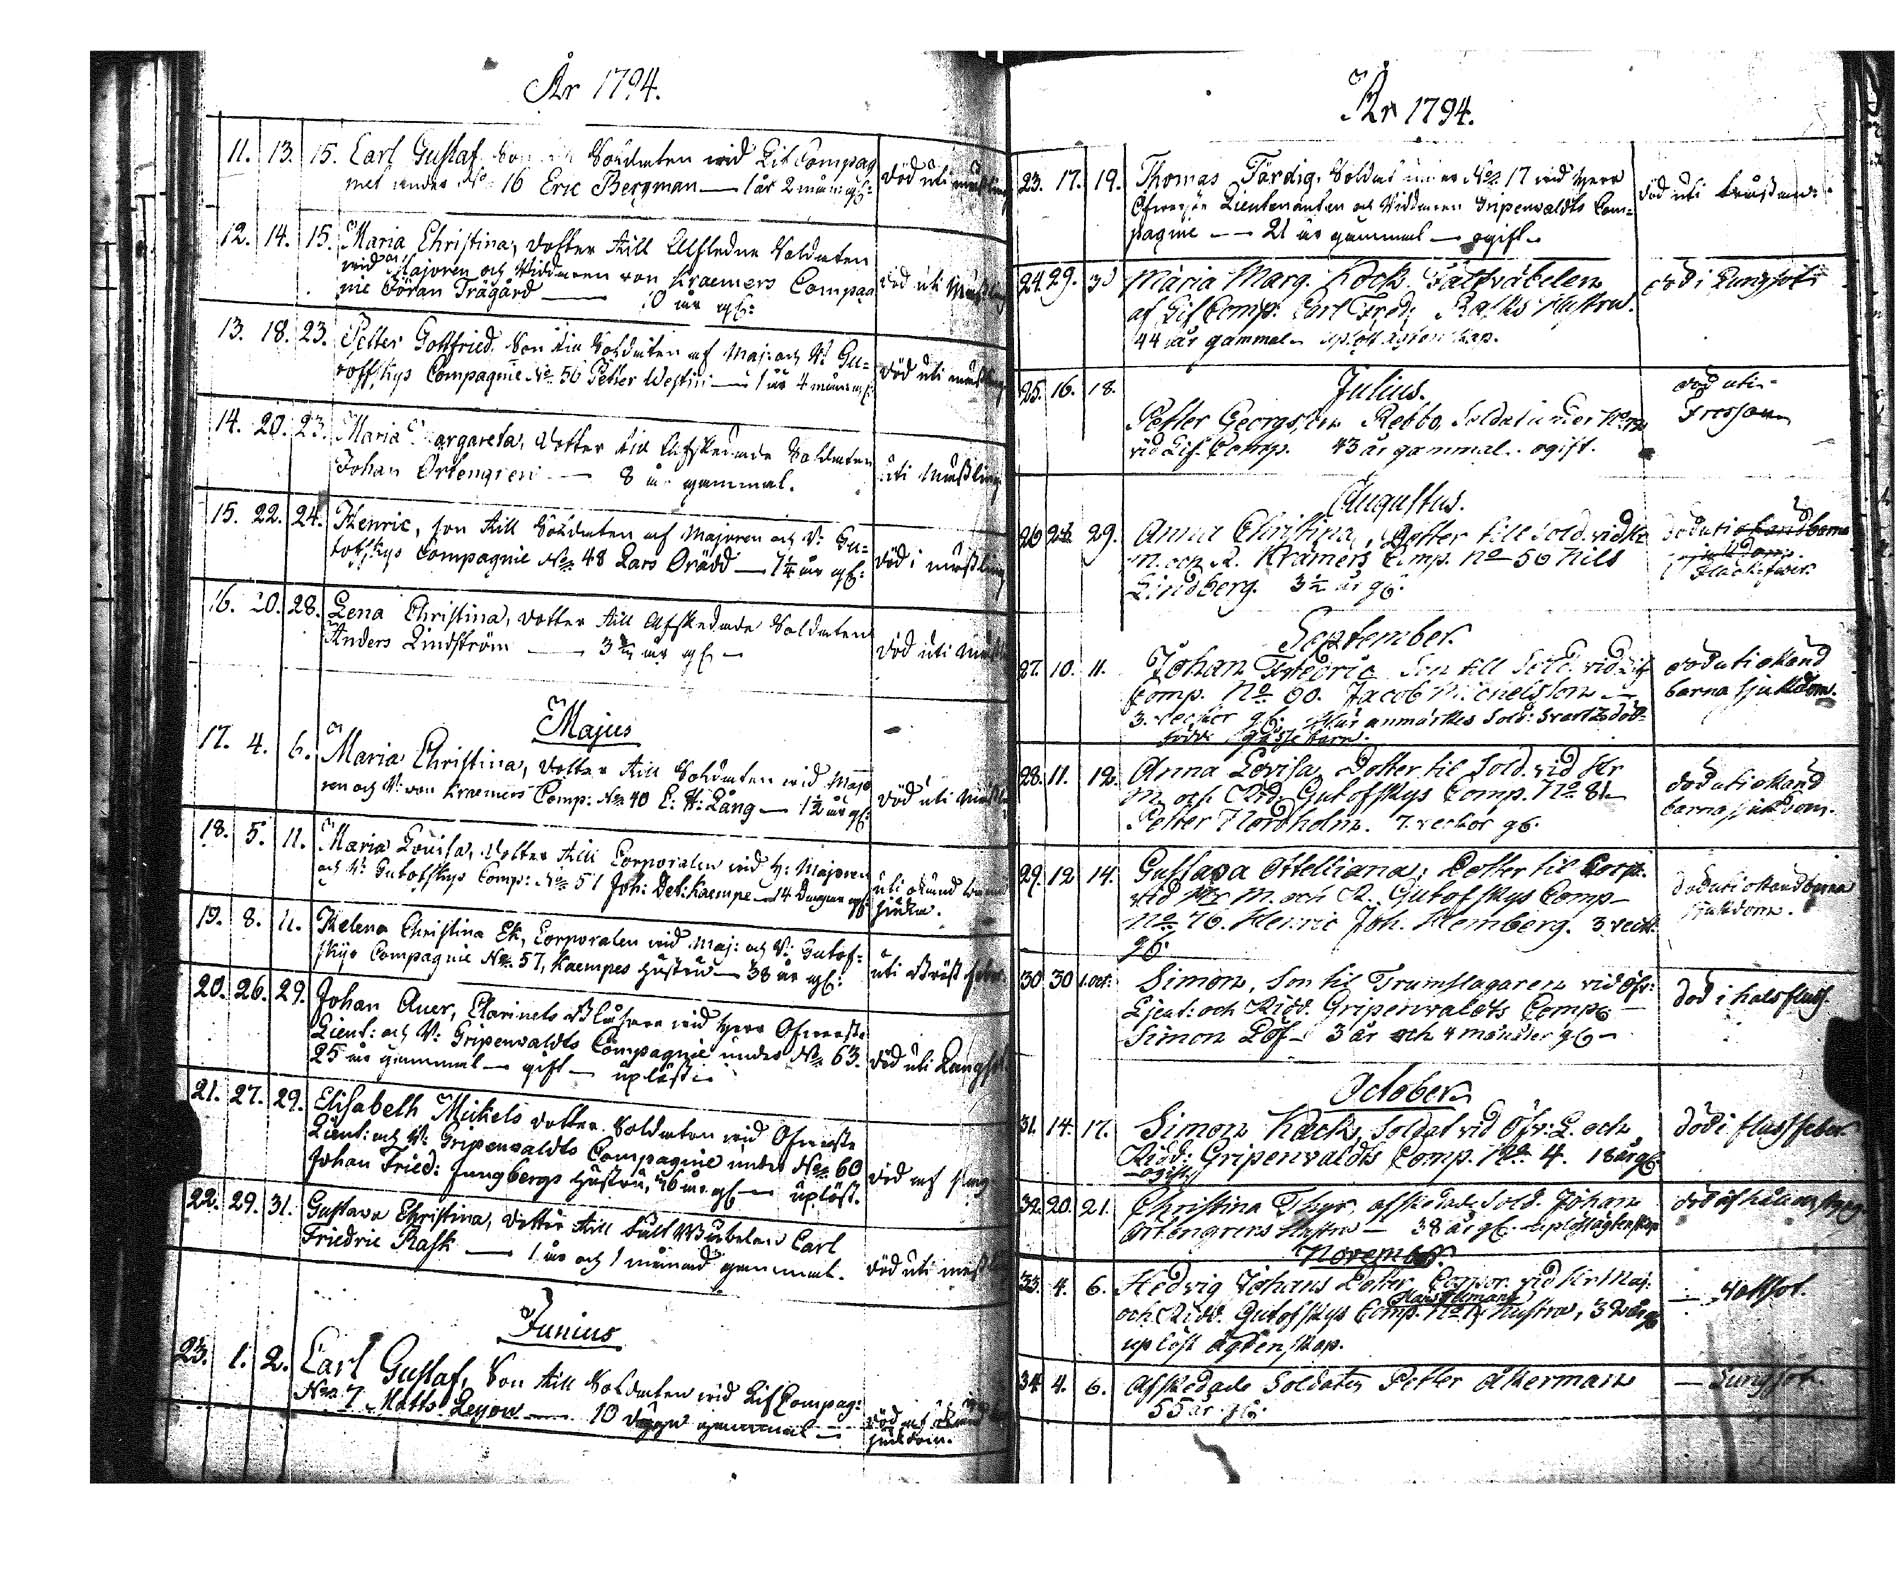 År 1794.
11. 13. 15. Carl Gustaf, Son Soldaten wid Lif Compag
niet under No 16 Eric Bergman — 1 år 2 mån: gl:
död uti mäßling
12. 14. 15. Maria Christina, dotter till Afskedne Soldaten
wid Majoren och Riddaren von Kraemers Compag
nie Göran Trägård — 10 år gl:
död uti Mäßling
13. 18. 23. Petter Gottfried. Son till Soldaten af Maj: och R: Gu-
toffskys Compagnie No 56 Petter Westin — 1 år 4 mån: gl:
död uti mäßling
14. 20. 23. Maria Margareta, dotter till Afskedade Soldaten
Johan Ortengren — 8 år gammal.
uti Mäßling
15. 22. 24. Henric, son till Soldaten af Majoren och R: Gu-
tofskys Compagnie No 48 Lars Orädd — 1¼ år gl:
död i mäßling
16. 20. 28. Lena Christina, dotter till Afskedade Soldaten
Anders Lindström — 3 år gl —
död uti
Majus
17. 4. 6. Maria Christina, dotter till Soldaten wid Majo
ren och R: von Kraemers Comp: No 40 E. H: Lång — 1½ år gl:
död uti
18. 5. 11. Maria Lovisa, dotter till Corporalen wid H: Majoren
och R: Gutofskys Comp: No 51 Joh: Det: Kaempe — 14 dagar gl
uti okänd barna
sjukd.
19. 8. 11. Helena Christina Ek, Corporalen wid Maj: och R: Gutof-
skys Compagnie No 57, Kaempes Hustru — 38 år gl:
uti Bröst feber
20. 26. 29. Johan Auer, Clarinets Blåsare wid Herr Öfwerste
Lieut: och R: Gripenwaldts Compagnie under No 63.
25 år gammal — gift — uplöst —
död uti Lungsot
21. 27. 29. Elisabeth Mickels dotter. Soldaten wid Öfwerste
Lieut: och R: Gripenwaldts Compagnie under No 60
Johan Fried: Jungbergs Hustru, 76 år gl — uplöst.
död af
22. 29. 31. Gustava Christina, dotter till Fält Wäbelen Carl
Friedric Rask — 1 år och 1 månad gammal.
död uti
Junius
23. 1. 2. Carl Gustaf, Son till Soldaten wid Lif Compag:
No 7 Matts Leyon — 10 dagar gammal —
död af okänd
sjukdom.
År 1794.
23. 17. 19. Thomas Färdig, Soldat under No 17 wid Herr
Öfwerste Lieutenanten och Riddaren Gripenwaldts Com-
pagnie — 21 år gammal — ogift —
död uti
24. 29. 30 Maria Marg. Kock Fältväbelen
af Lif Comp: Carl Fred: Rasks Hustru.
44 år gammal. uplöst äktenskap.
död i Lungsot
Julius.
25. 16. 18. Petter Georgsson Rebbo, Soldat under No
vid Lif. Comp. 43 år gammal. ogift.
död uti
Augustus.
26 29. Anna Christina, Dotter till Sold. vid Hr
M. och R. Kramers Comp. No 50 Nils
Lindberg. 3½ år gl:
död uti okänd barna
sjukdom.
Fläckfeber.
September.
27. 10. 11. Johan Fredric Son till Sold. vid Lif
Comp. No 60. Jacob Michelsson —
3. veckor gl: Här anmärkes Sold: Svartz död-
född gåsse barn.
död uti okänd
barna sjukdom.
28. 11. 12. Anna Lovisa, Dotter til Sold. vid Hr
M. och Rid. Gutofskys Comp. No 81.
Petter Nordholm. 7. veckor gl.
död uti okänd
barna sjukdom.
29. 12 14. Gustava Ottelliana, Dotter til Corp.
vid Hr M. och R. Gutofskys Comp—
No 76. Henric Joh. Hemberg. 3 veck:
gl.
död uti okänd barna
sjukdom.
30 30 1. oct: Simon, Son til Trumslagaren vid Öfv:
Ljeut: och Ridd. Gripenvaldts Comp.
Simon Löf — 3 år och 4 månader gl —
död i halsfluss.
October.
31. 14. 17. Simon Kack, Soldat vid Öfv: L. och
Ridd: Gripenvaldts Comp. No 4. 18 år gl:
ogift
död i flussfeber
32. 20. 21. Christina Thyr, afskedade Sold. Johan
Ortengrens Hustru — 38 år gl. uplöst ägtenskap
död af
November.
33. 4. 6. Hedvig Johans Dotter, Corpor. vid Hr Maj:
och Ridd. Gutofskys Comp. No Hustru, 32 år gl
uplöst ägtenskap.
— Hetsot.
34 4. 6. Afskedade Soldaten Petter Åkerman
55 år gl:
— Lungsot.